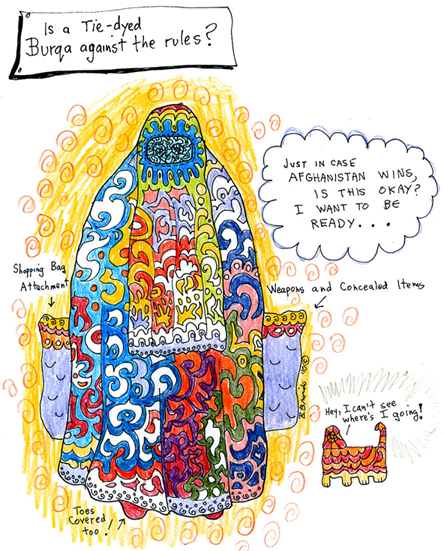 Is a Tie-dyed
Burqa against the rules?
JUST IN CASE
AFGHANISTAN WINS,
IS THIS OKAY?
I WANT TO BE
READY...
Shopping Bag
Attachment
Weapons and Concealed Items
Hey, I can't see
where's I going!
Toes
Covered
too!